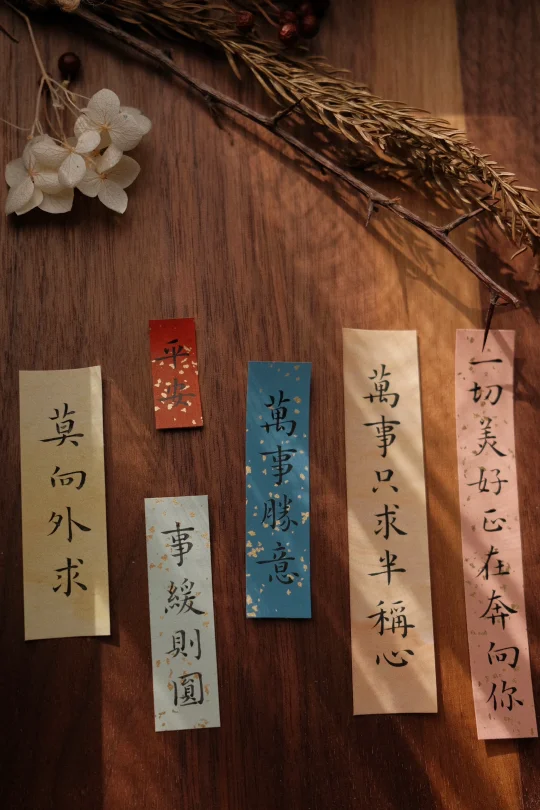 莫向外求
平安
事緩則圓
萬事勝意
萬事只求半稱心
一切美好正在奔向你